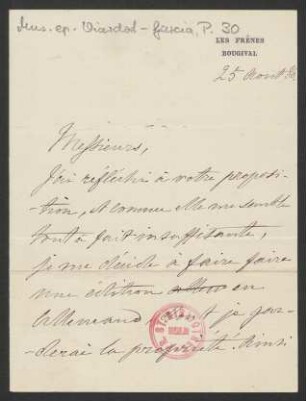 Mus. ep. Viardot-Garcia, P. 30
LES FRÊNES
BOUGIVAL
25 Août
Messieurs,
J'ai réfléchi à votre proposi-
tion, et comme elle me semble
tout à fait insuffisante,
je me décide à faire faire
une édition en
Allemand je gar-
derai la propriété. Ainsi